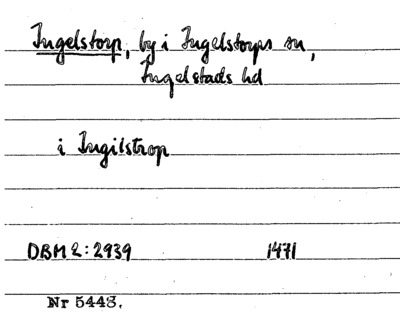 Ingelstorp, by i Ingelstorps sn,
Ingelstads hd
i Ingilstrop
DBM 2:2939 1471
Nr 5443.